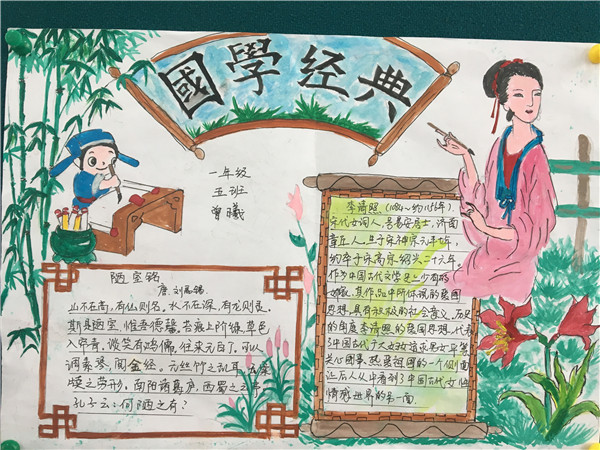 國學经典
一年级
五班
曾曦
陋室铭
唐 刘禹锡
山不在高,有仙则名。水不在深,有龙则灵。
斯是陋室,惟吾德馨。苔痕上阶绿,草色
入帘青。谈笑有鸿儒,往来无白丁。可以
调素琴,阅金经。无丝竹之乱耳,无案
牍之劳形。南阳诸葛庐,西蜀子云亭
孔子云:何陋之有?
李清照(1084~约1156年),
宋代女词人,号易安居士,济南
章丘人,生于宋神宗元丰七年,
约卒于宋高宗绍兴二十六年。
作为中国古代文学史上少有的
女作家,其作品中所体现的爱国
思想,具有积极的社会意义,历史
的角度李清照的爱国思想,代表
了中国古代广大妇女追求男女平等、
关心国事、热爱祖国的一个侧面
让后人从中看到了中国古代女性
情感世界的另一面